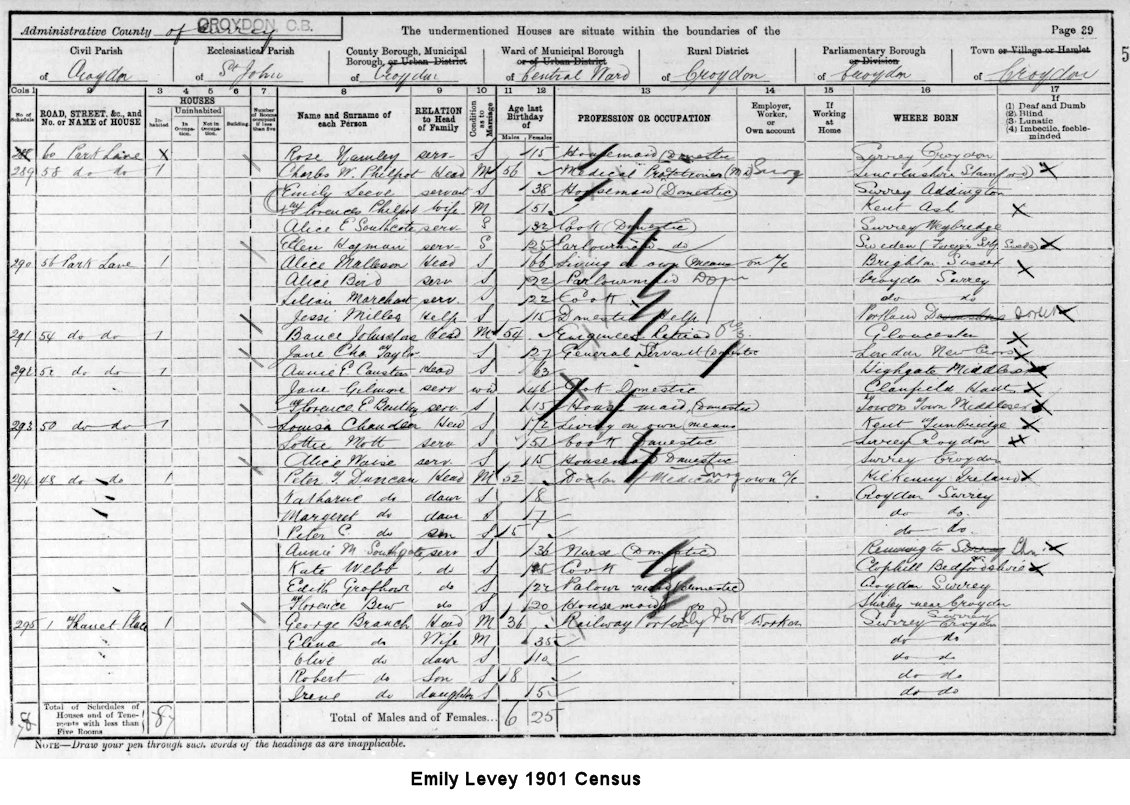 Administrative County of Surrey CROYDON C.B. The undermentioned Houses are situate within the boundaries of the Page 29
Civil Parish Ecclesiastical Parish County Borough, Municipal Borough, or Urban District Ward of Municipal Borough or of Urban District Rural District Parliamentary Borough or Division Town or Village or Hamlet
of Croydon of St John of Croydon of Central Ward of Croydon of Croydon of Croydon
5
Cols 1 2 3 4 5 6 7 8 9 10 11 12 13 14 15 16 17
No. of Schedule ROAD, STREET, &c., and No. or NAME of HOUSE HOUSES Inhabited Uninhabited In Occupation. Not in Occupation. Building. Number of Rooms occupied if less than five Name and Surname of each Person RELATION to Head of Family Condition as to Marriage Age last Birthday of Males Females PROFESSION OR OCCUPATION Employer, Worker, or Own account If Working at Home WHERE BORN If (1) Deaf and Dumb (2) Blind (3) Lunatic (4) Imbecile, feeble-minded
288 60 Park Lane X Rose serv S 15 Housemaid (Domestic) Surrey Croydon
289 58 do do 1 Charles W. Philpot Head M 56 Medical Practitioner Lincolnshire Stamford
Emily servant S 38 Housemaid (Domestic) Surrey Addington
Florence Philpot Wife M 51 Kent Ash
Alice E Southcote serv S 32 Cook (Domestic) Surrey Weybridge
Ellen serv S 25 Parlourmaid do Sweden (Foreign
290 56 Park Lane 1 Alice Malleson Head S 66 Living on own means on a/c Brighton Sussex
Alice Bird serv S 22 Parlourmaid Dom Croydon Surrey
Lilian Marchant serv S 22 Cook do do
Jessi Miller Help S 15 Domestic Help Portland Dorset
291 54 do do 1 Head M 54 Engineer Retired Gloucester
Jane Taylor S 27 General Servant (Domestic London New Cross
292 52 do do 1 Annie E Head S 63 Highgate Middlesex
Jane Gilmore serv wid 46 Cook Domestic Clanfield Hants
Florence E Bentley serv S 15 House maid (Domestic) Town Middlesex
293 50 do do 1 Louisa Chandler Head S 72 Living on own means Kent Tunbridge
Lottie Mott serv S 51 Cook Domestic Surrey Croydon
Alice Waise serv S 15 Housemaid Domestic Surrey Croydon
294 48 do do 1 Peter T. Duncan Head M 52 Doctor of Medicine own a/c Kilkenny Ireland
Katharine do daur S 18 Croydon Surrey
Margaret do daur S 17 do do
Peter C. do son S 15 do do
Annie M Southgate serv S 36 Nurse (Domestic)
Kate Webb do S 25 Cook do Clophill Bedfordshire
Edith do S 22 Palour maid (Domestic) Croydon Surrey
Florence Bew do S 20 Housemaid do Shirley near Croydon
295 1 Thanet Place 1 George Branch Head M 36 Railway Porter Worker Surrey Croydon
Elena do Wife M 35 do do
Olive do daur S 10 do do
Robert do Son S 8 do do
Irene do daughter S 5 do do
Total of Schedules of Houses and of Tenements with less than Five Rooms 8 Total of Males and of Females... 6 25
NOTE—Draw your pen through such words of the headings as are inapplicable.
Emily Levey 1901 Census